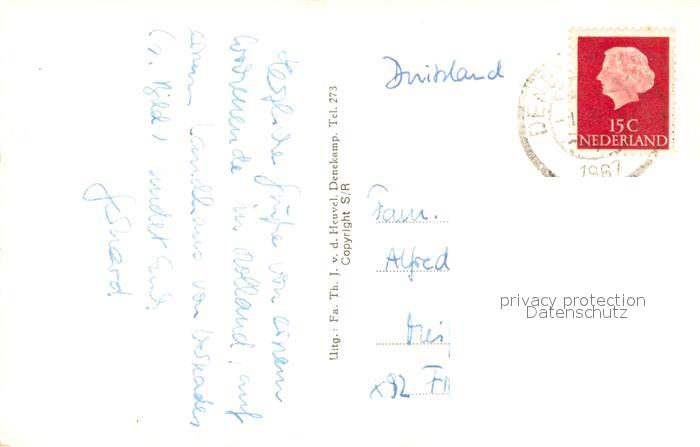 Herzliche Grüße von einem
Wochenende in Holland, auf
einem Landhaus von
(s. Bild) sendet Euch
Uitg.: Fa. Th. J. v. d. Heuvel, Denekamp. Tel. 273
Copyright S/R
Duitsland
15 C
NEDERLAND
DE
1967
Fam.
Alfred
x92 F
privacy protection
Datenschutz